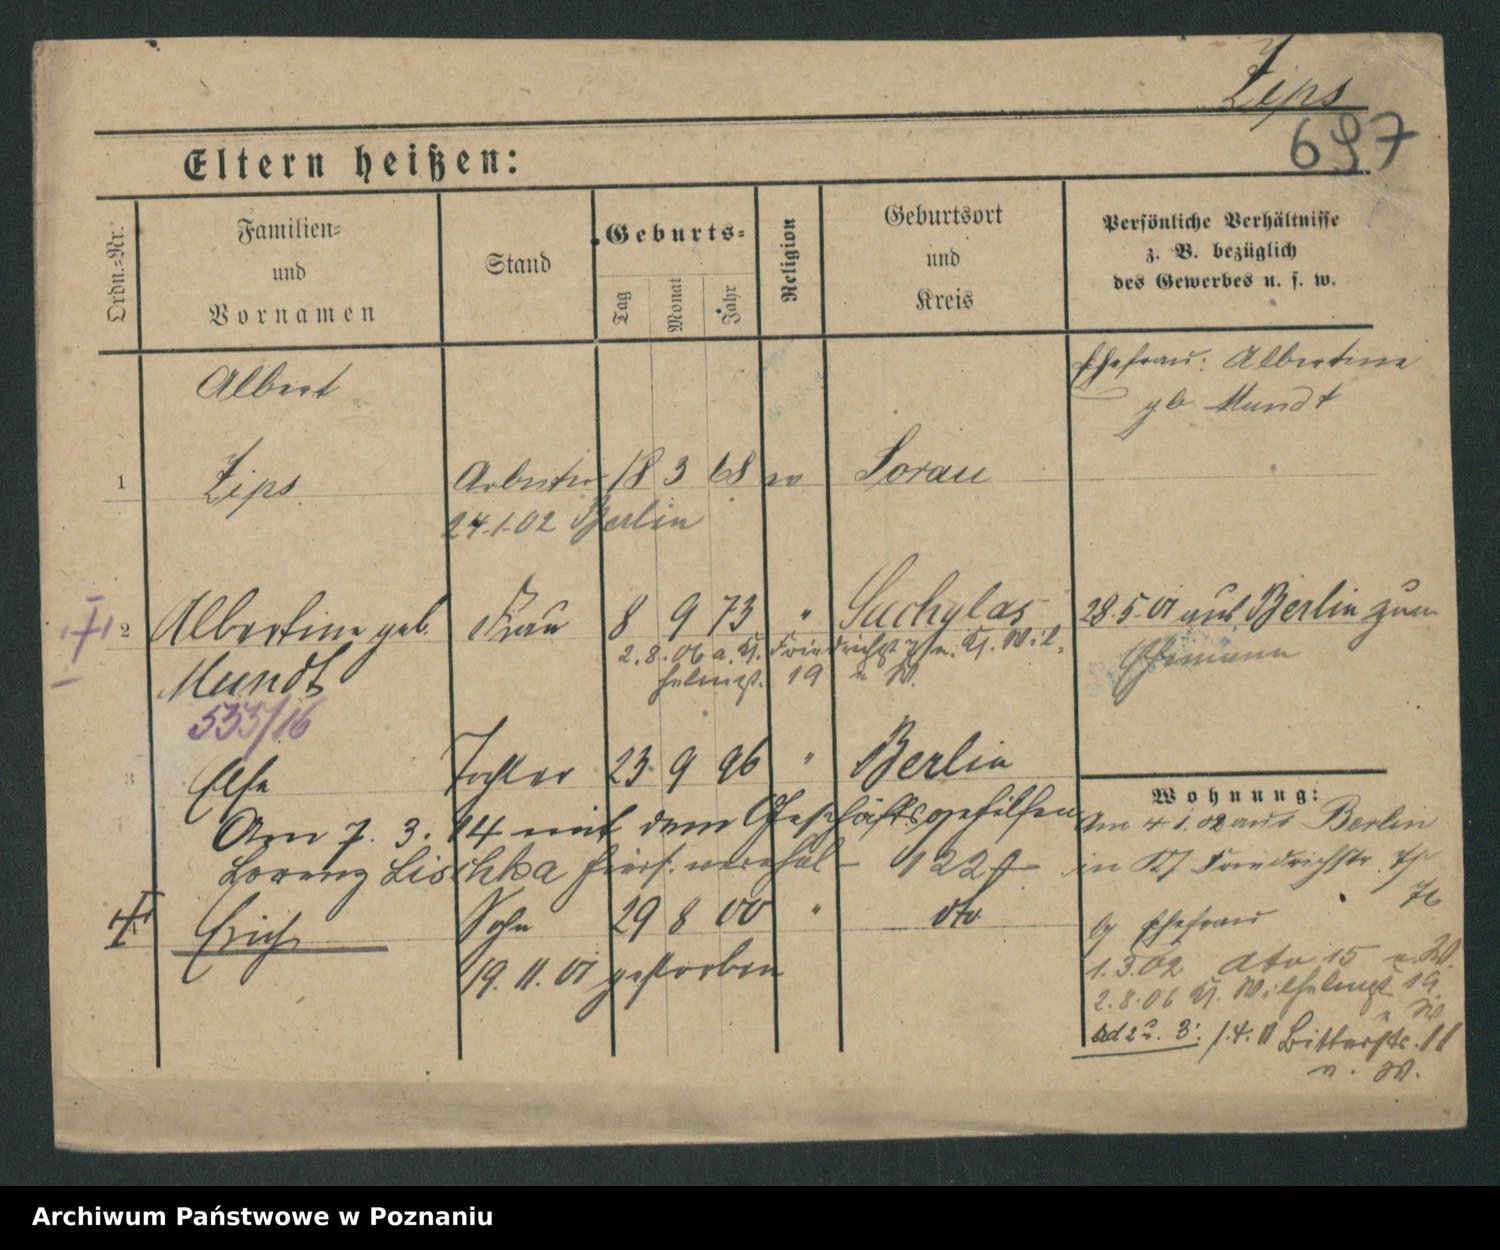 Zips
697
Eltern heißen:
Ordn.-Nr.
Familien-
und
Vornamen
Stand
Geburts-
Tag
Monat
Jahr
Religion
Geburtsort
und
Kreis
Persönliche Verhältnisse
z. B. bezüglich
des Gewerbes u. s. w.
Albert
Ehefrau: Albertine
gb Mundt
1 Zips Arbeiter 18 3 68 ev Sorau
24.1.02 Berlin
2 Albertine geb. Frau 8 9 73 " 28.5.01 aus Berlin zum
Mundt
Ehemann
2.8.06 a. Kl. n. Kl. Wil-
helmst. 19 n W.
533/16
3 Else Tochter 23 9 96 " Berlin
Am 7. 3. 14 mit dem Geschäftsgehilfen
Lorenz Lischka hiers. verehel 122
Erich Sohn 29 8 00 " dto
19. 11. 01 gestorben
Wohnung:
Am 4 1. 02 aus Berlin
in Kl Friedrichstr.
Ehefrau
1.3.02 dto 15 n. W.
2.8.06 Kl. Wilhelmst 19
n W
ad 2 u. 3: 1.4.11 Bitterstr. 11
n. W.
Archiwum Państwowe w Poznaniu